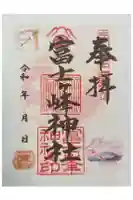 奉拝
富士峰神社
令和 年 月 日